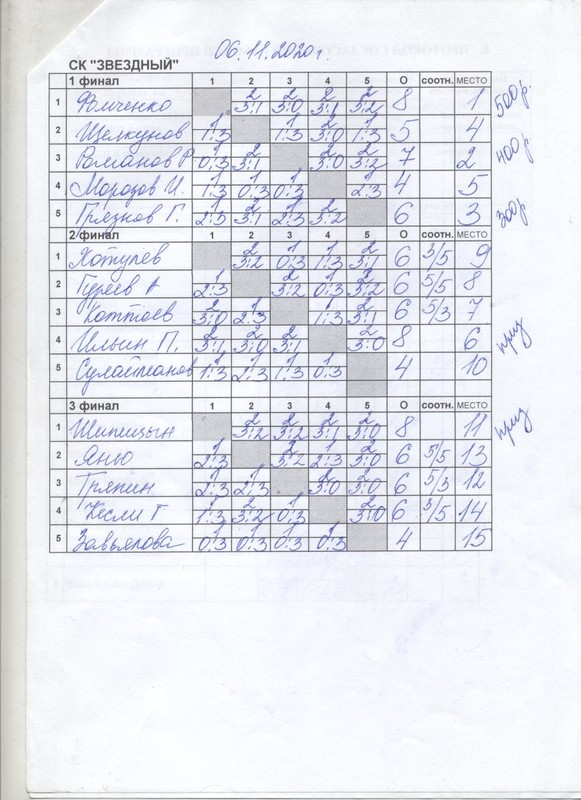 06.11.2020г.
СК "ЗВЕЗДНЫЙ"
1 финал 1 2 3 4 5 О соотн. МЕСТО
1 2 3:1 2 3:0 2 3:1 2 3:2 8 1 500р.
2 Щелкунов 1 1:3 1 1:3 2 3:0 1 1:3 5 4
3 Романов Р 1 0:3 2 3:1 2 3:0 2 3:2 7 2 400р
4 Морозов И. 1 1:3 1 0:3 1 0:3 1 2:3 4 5
5 Грязнов Г. 1 2:3 2 3:1 1 2:3 2 3:2 6 3 300р
2 финал 1 2 3 4 5 О соотн. МЕСТО
1 Хотулев 2 3:2 1 0:3 1 1:3 2 3:1 6 3/5 9
2 Гуреев А 1 2:3 2 3:2 1 0:3 2 3:2 6 5/5 8
3 2 3:0 1 2:3 1 1:3 2 3:1 6 5/3 7
4 Ильин П. 2 3:1 2 3:0 2 3:1 2 3:0 8 6 приз
5 Сулайманов 1 1:3 1 2:3 1 1:3 1 0:3 4 10
3 финал 1 2 3 4 5 О соотн. МЕСТО
1 Шипицын 2 3:2 2 3:2 2 3:1 2 3:0 8 11 приз
2 Яню 1 2:3 2 3:2 1 2:3 2 3:0 6 5/5 13
3 Тряпин 1 2:3 1 2:3 2 3:0 2 3:0 6 5/3 12
4 Кесли Г 1 1:3 2 3:2 1 0:3 2 3:0 6 3/5 14
5 Завьялова 1 0:3 1 0:3 1 0:3 1 0:3 4 15